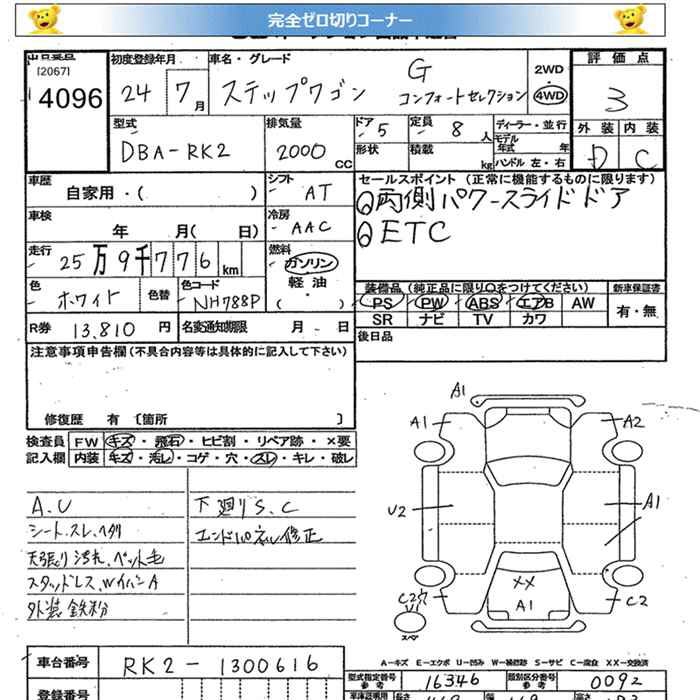 完全ゼロ切りコーナー
出品番号
[2067]
4096
初度登録年月
24 7 月
車名・グレード
G
ステップワゴン コンフォートセレクション
2WD
・
4WD
評価点
3
外装 内装
D C
型式
DBA-RK2
排気量
2000 CC
ドア 5
形状
定員 8 人
積載 kg
ディーラー・並行
モデル年式 年
ハンドル 左・右
車歴
自家用・( )
シフト AT
車検
年 月( 日)
冷房 AAC
走行 25万9千776km
燃料
ガソリン
軽油
・( )
色 ホワイト
色替
色コード NH788P
R券 13,810 円
名変通知期限 月 日
セールスポイント (正常に機能するものに限ります)
◎両側パワースライドドア
◎ETC
装備品 (純正品に限り○をつけてください)
PS PW ABS エアB AW
SR ナビ TV カワ
新車保証書
有・無
後日品
注意事項申告欄(不具合内容等は具体的に記入して下さい)
修復歴 有 〔箇所 〕
検査員記入欄
FW キズ・飛石・ヒビ割・リペア跡・×要
内装 キズ・汚レ・コゲ・穴・スレ・キレ・破レ
A.U
シート.スレ.ヘタリ
天張り汚れ、ペット毛
スタッドレス、WイハンA
外装鉄粉
下廻りS.C
エンドパネル修正
A1
A1
A2
U2
A1
XX
A1
C2穴
U1
C2
スペア
A-キズ E-エクボ U-凹み W-補修跡 S-サビ C-腐食 XX-交換済
車台番号 RK2-1300616
登録番号
型式指定番号
参考
16346
類別区分番号
参考
0092